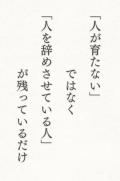 「人が育たない」
ではなく
「人を辞めさせている人」
が残っているだけ